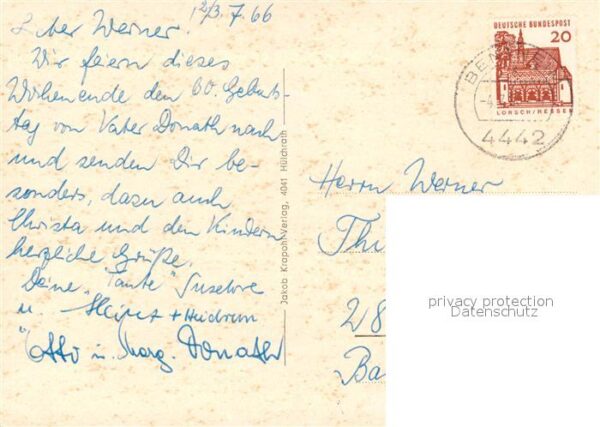 2/3.7.66
Lieber Werner.
Wir feiern dieses
Wochenende den 60. Geburts-
tag von Vater Donath nach
und senden Dir be-
sonders, dazu auch
Christa und den Kindern
herzliche Grüße.
Deine "Tante" Suselore
u. Heinz + Heidrun
Otto u. Marg. Donath
Jakob Krapohl-Verlag, 4041 Hülchrath
DEUTSCHE BUNDESPOST
20
LORSCH/HESSEN
4442
Herrn Werner
Th
28
Ba
privacy protection
Datenschutz